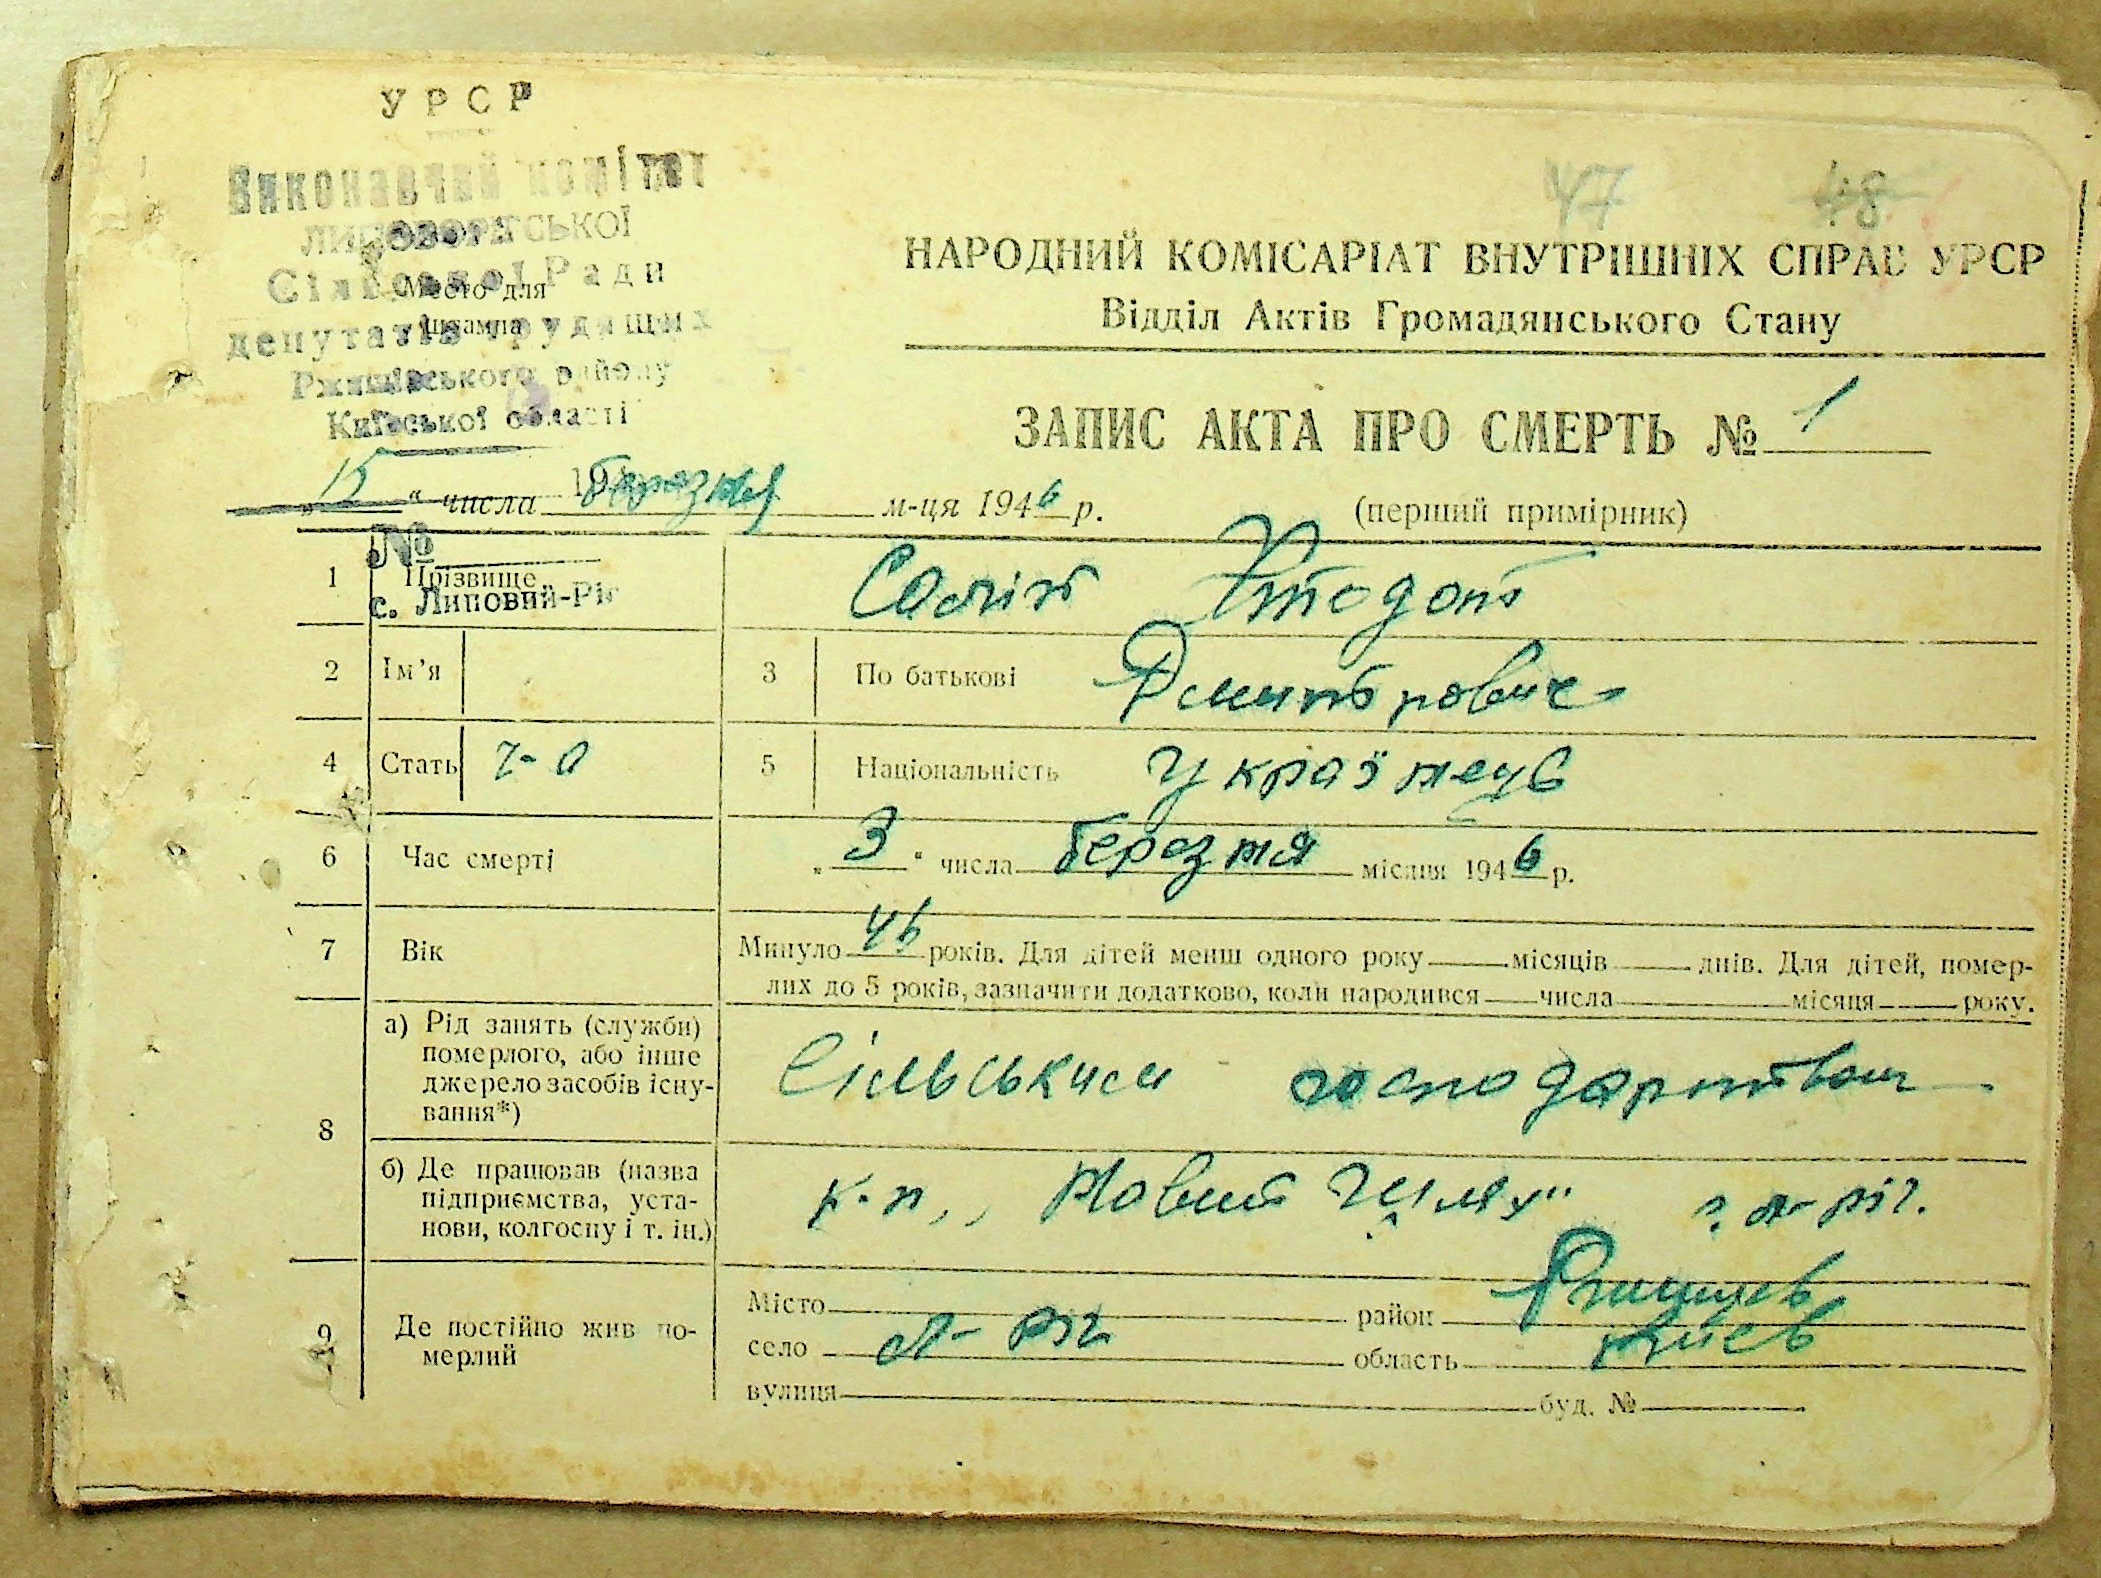 УРСР
Виконавчий комітет
ЛИПОВОРІГСЬКОЇ
Сільської Ради
Место для
штампа
депутатів трудящих
Ржищівського району
Київської області
47 48
НАРОДНИЙ КОМІСАРІАТ ВНУТРІШНІХ СПРАВ УРСР
Відділ Актів Громадянського Стану
ЗАПИС АКТА ПРО СМЕРТЬ № 1
„15“ числа березня м-ця 1946 р. (перший примірник)
№
1 Прізвище
с. Липовий-Ріг
2 Ім’я 3 По батькові Дмитрович
4 Стать ч-а 5 Національність українець
6 Час смерті „3“ числа березня місяця 1946 р.
7 Вік Минуло 46 років. Для дітей менш одного року місяців днів. Для дітей, помер-
лих до 5 років, зазначити додатково, коли народився числа місяця року.
8 а) Рід занять (служби)
померлого, або інше
джерело засобів існу-
вання*)
Сільським господарством
б) Де працював (назва
підприємства, уста-
нови, колгоспу і т. ін.)
к-п „Новий Шлях“ с. Л-ріг.
9 Де постійно жив по-
мерлий
Місто район Ржищев
село Л-ріг область Киев
вулиця буд. №